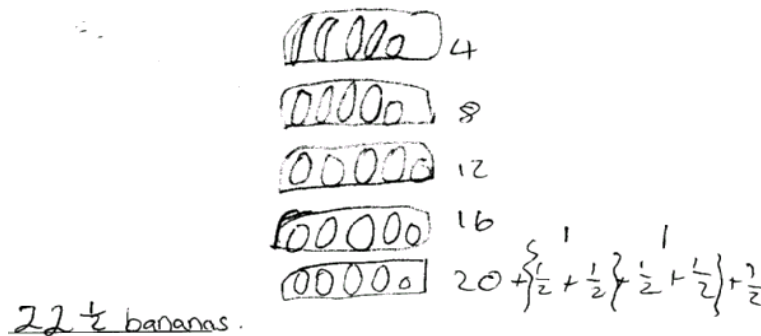 4
8
12
16
1 1
20 + {1/2 + 1/2} + 1/2 + 1/2} + 1/2
22 1/2 bananas.